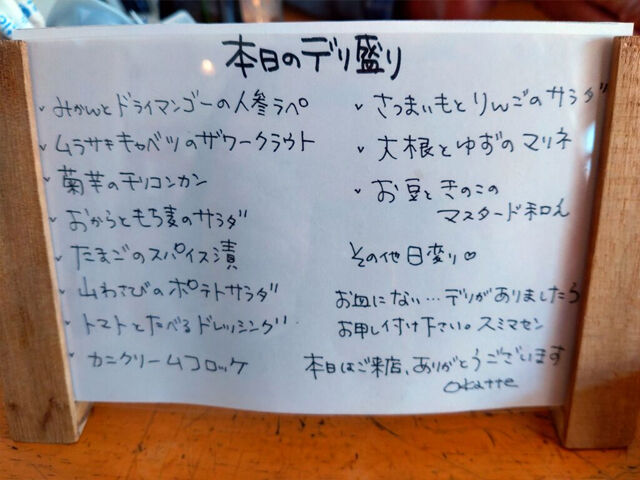 本日のデリ盛り
みかんとドライマンゴーの人参ラペ
ムラサキキャベツのザワークラウト
菊芋のチリコンカン
おからともち麦のサラダ
たまごのスパイス漬
山わさびのポテトサラダ
トマトとたべるドレッシング
カニクリームコロッケ
さつまいもとりんごのサラダ
大根とゆずのマリネ
お豆ときのこの
マスタード和え
その他日変り♡
お皿にない…デリがありましたら
お申し付け下さい。スミマセン
本日はご来店、ありがとうございます
okatte